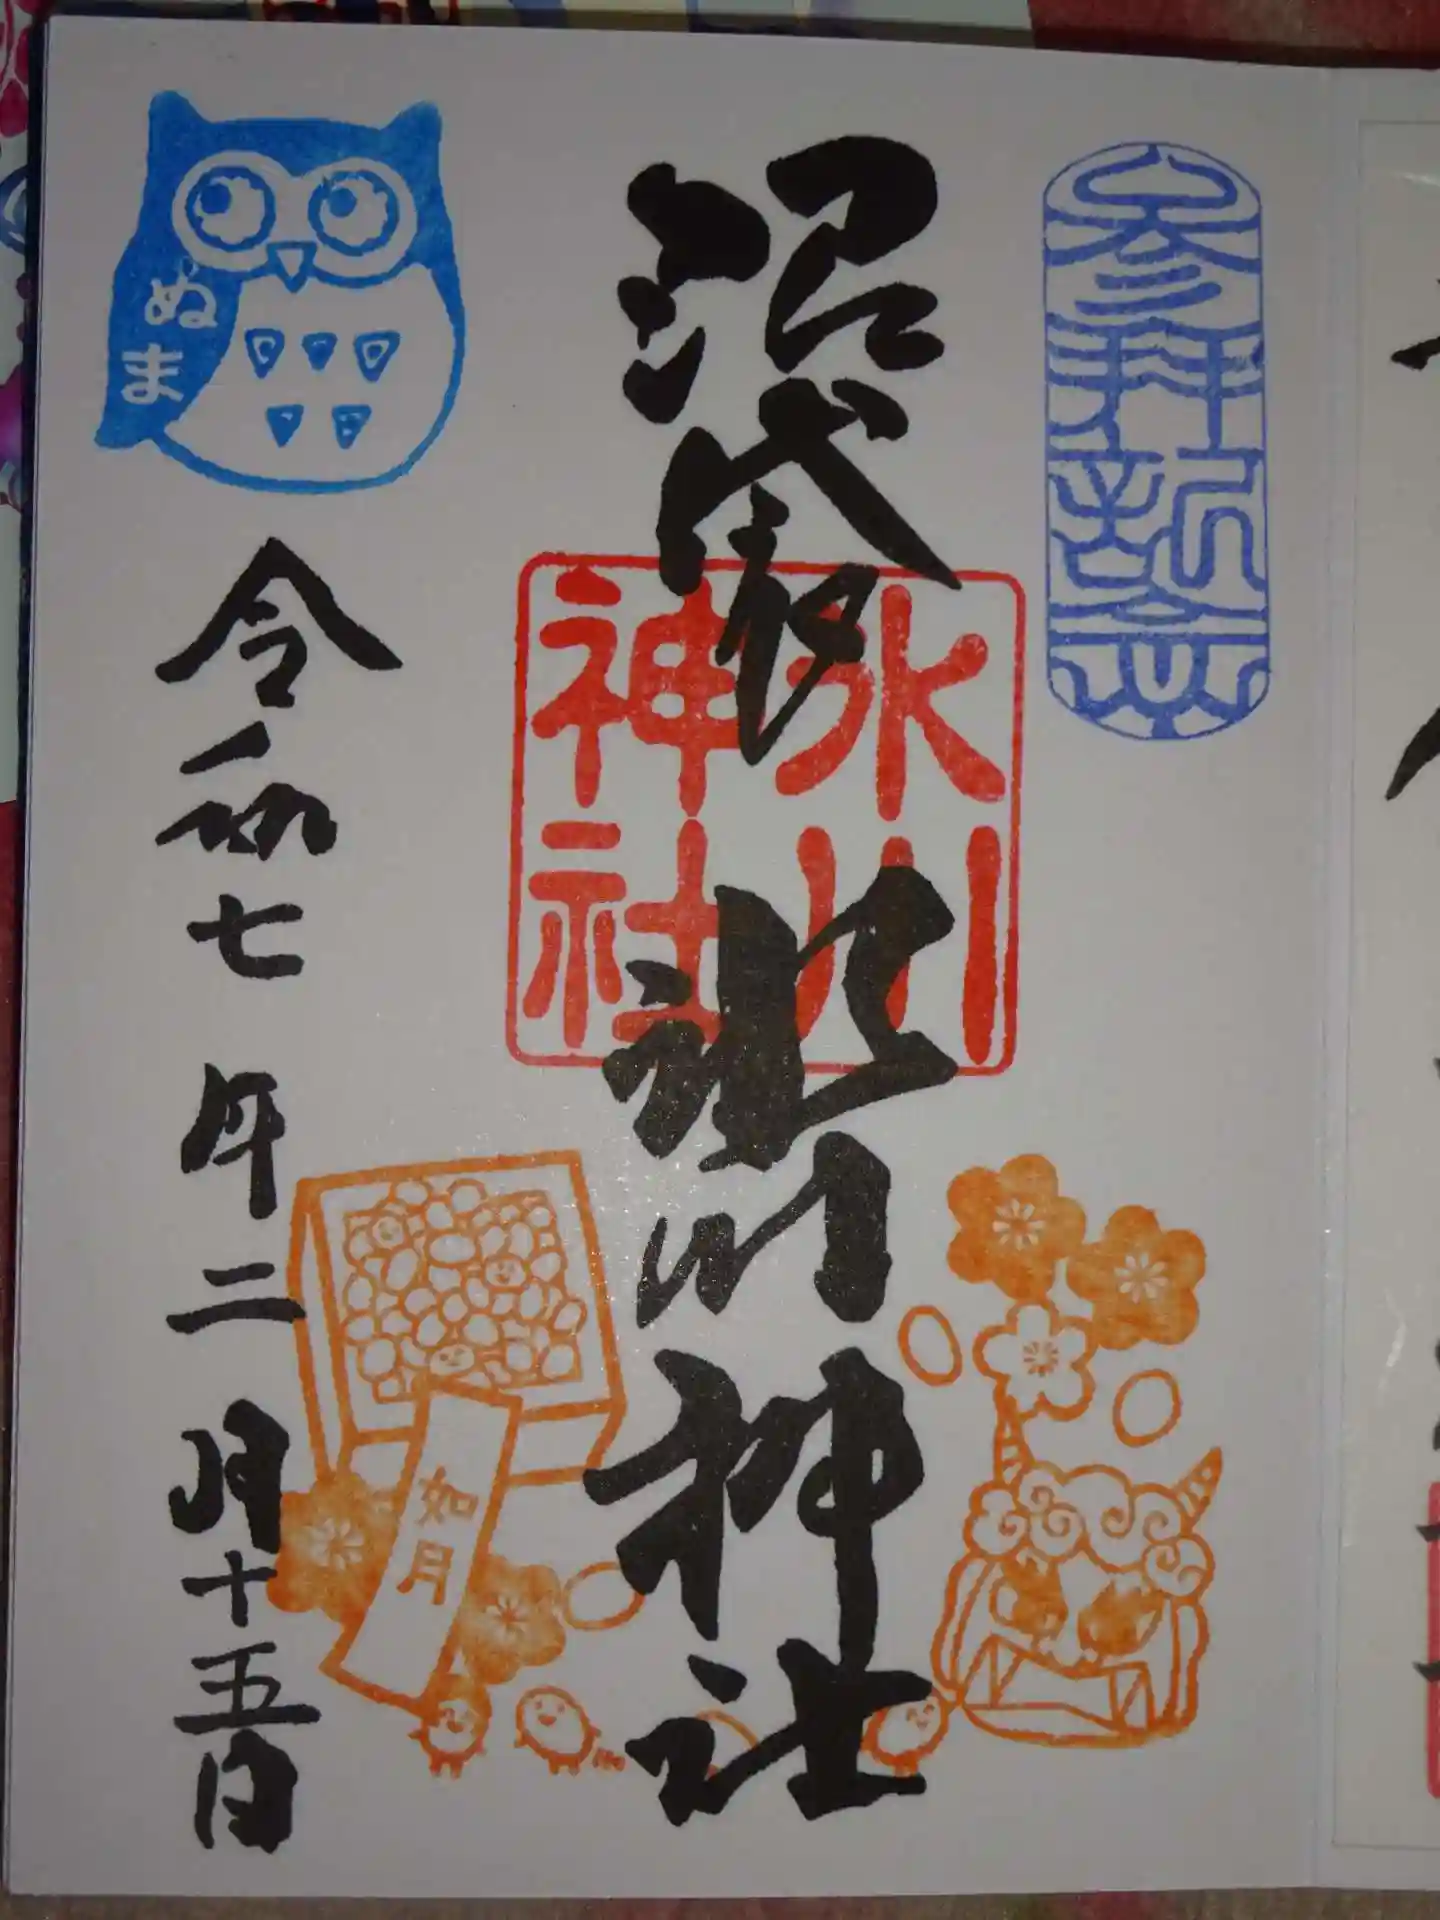 参拝祈念
沼袋
氷川神社
氷川
神社
如月
ぬま
令和七年二月十五日